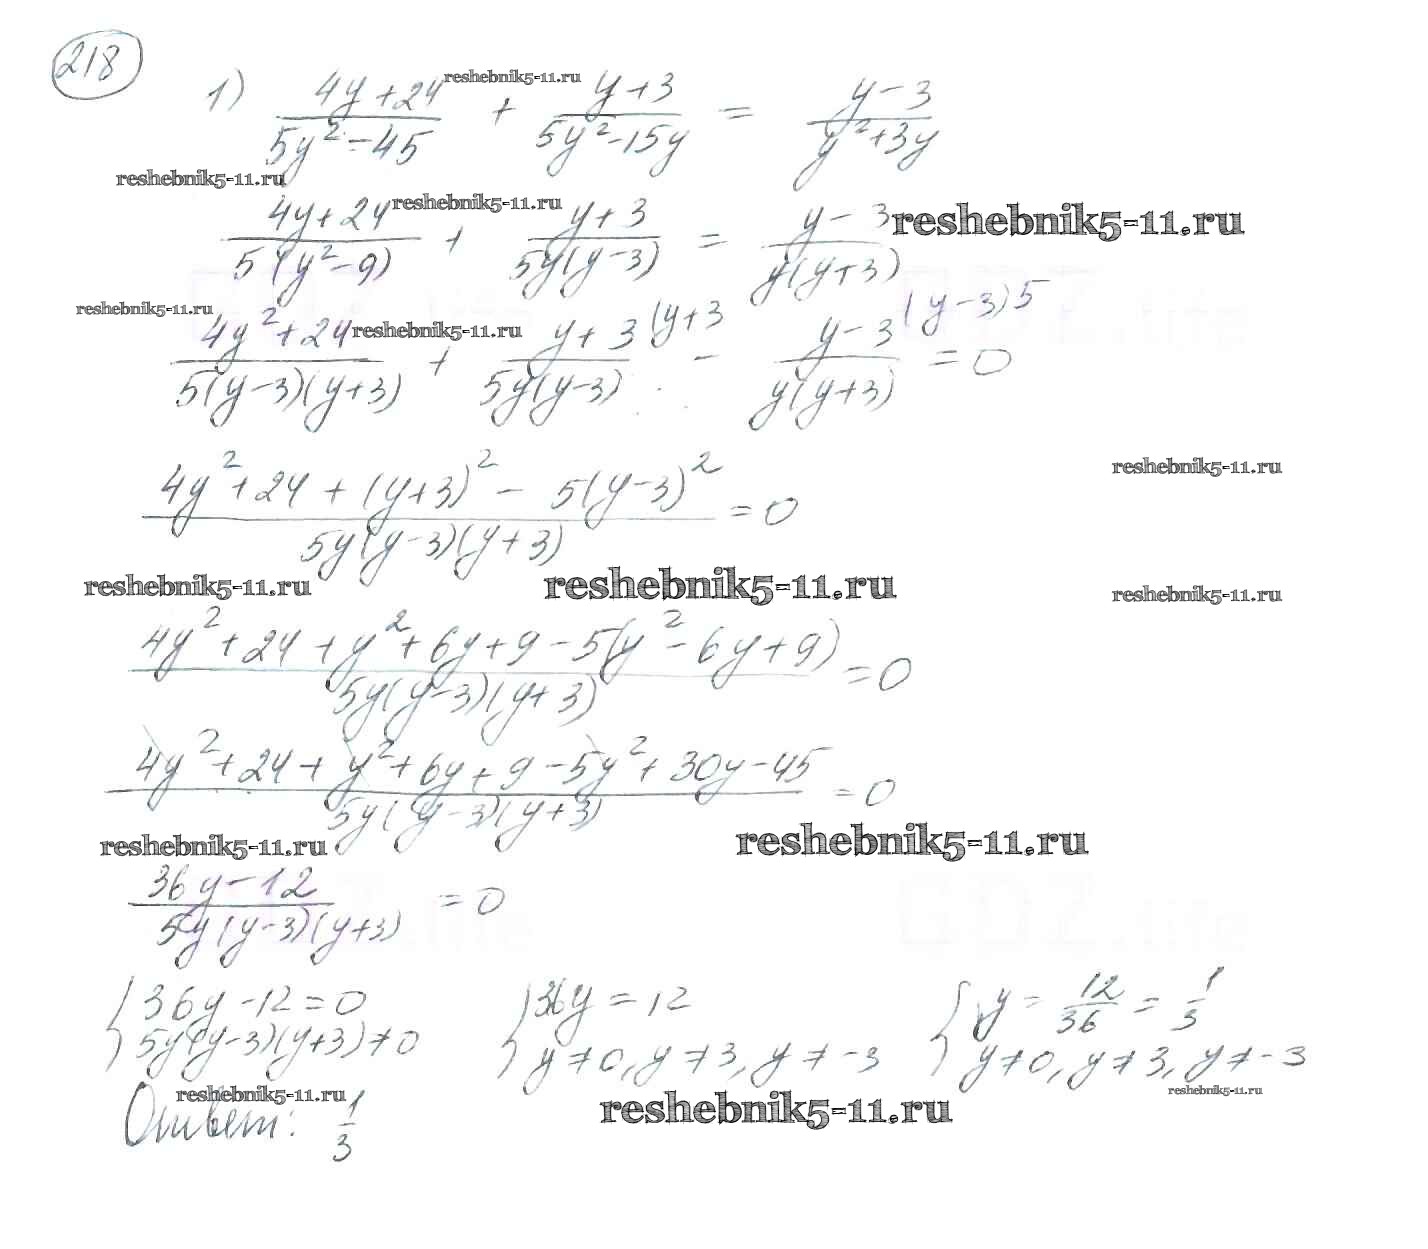 218
1) (4y+24)/(5y²-45) + (y+3)/(5y²-15y) = (y-3)/(y²+3y)
reshebnik5-11.ru
reshebnik5-11.ru
(4y+24)/(5(y²-9)) + (y+3)/(5y(y-3)) = (y-3)/(y(y+3))
reshebnik5-11.ru
reshebnik5-11.ru
reshebnik5-11.ru
(4y²+24)/(5(y-3)(y+3)) + (y+3 (y+3)/(5y(y-3)) - (y-3 (y-3)5)/(y(y+3)) = 0
reshebnik5-11.ru
reshebnik5-11.ru
(4y²+24+(y+3)²-5(y-3)²)/(5y(y-3)(y+3)) = 0
reshebnik5-11.ru
reshebnik5-11.ru
reshebnik5-11.ru
(4y²+24+y²+6y+9-5(y²-6y+9))/(5y(y-3)(y+3)) = 0
(4y²+24+y²+6y+9-5y²+30y-45)/(5y(y-3)(y+3)) = 0
reshebnik5-11.ru
reshebnik5-11.ru
(36y-12)/(5y(y-3)(y+3)) = 0
{36y-12=0 {36y=12 {y=12/36=1/3
5y(y-3)(y+3)≠0 y≠0, y≠3, y≠-3 y≠0, y≠3, y≠-3
reshebnik5-11.ru
reshebnik5-11.ru
reshebnik5-11.ru
Ответ: 1/3